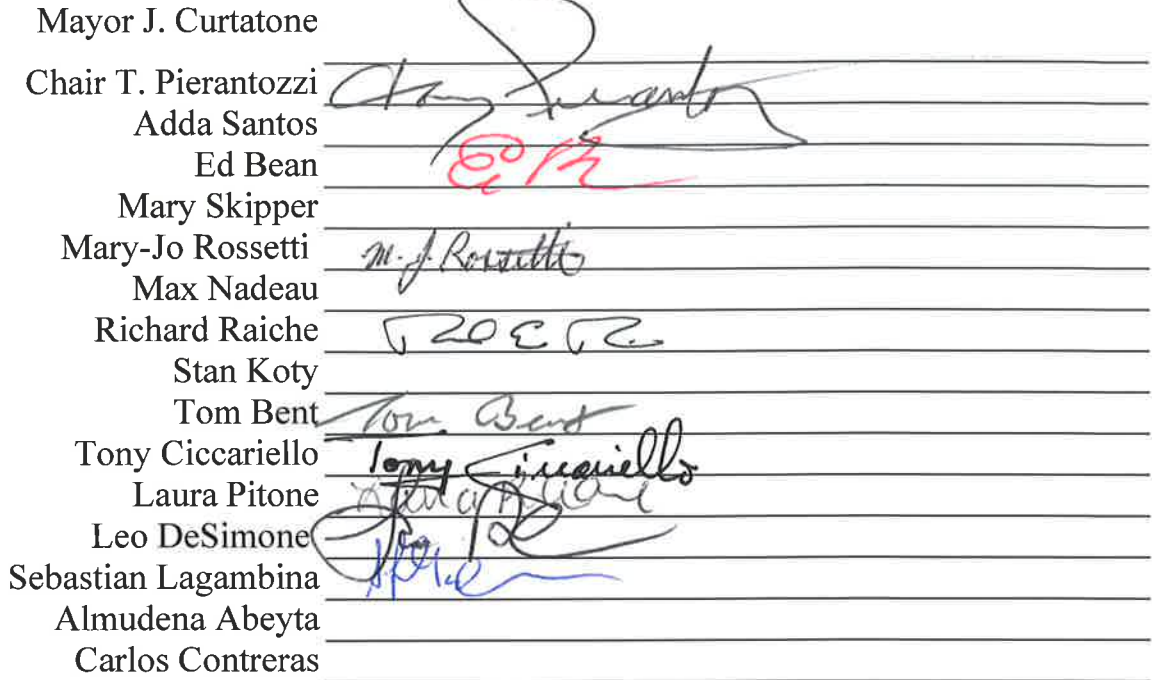 Mayor J. Curtatone
Chair T. Pierantozzi
Adda Santos
Ed Bean
Mary Skipper
Mary-Jo Rossetti M. J. Rossetti
Max Nadeau
Richard Raiche
Stan Koty
Tom Bent Tom Bent
Tony Ciccariello Tony Ciccariello
Laura Pitone Laura Pitone
Leo DeSimone
Sebastian Lagambina
Almudena Abeyta
Carlos Contreras